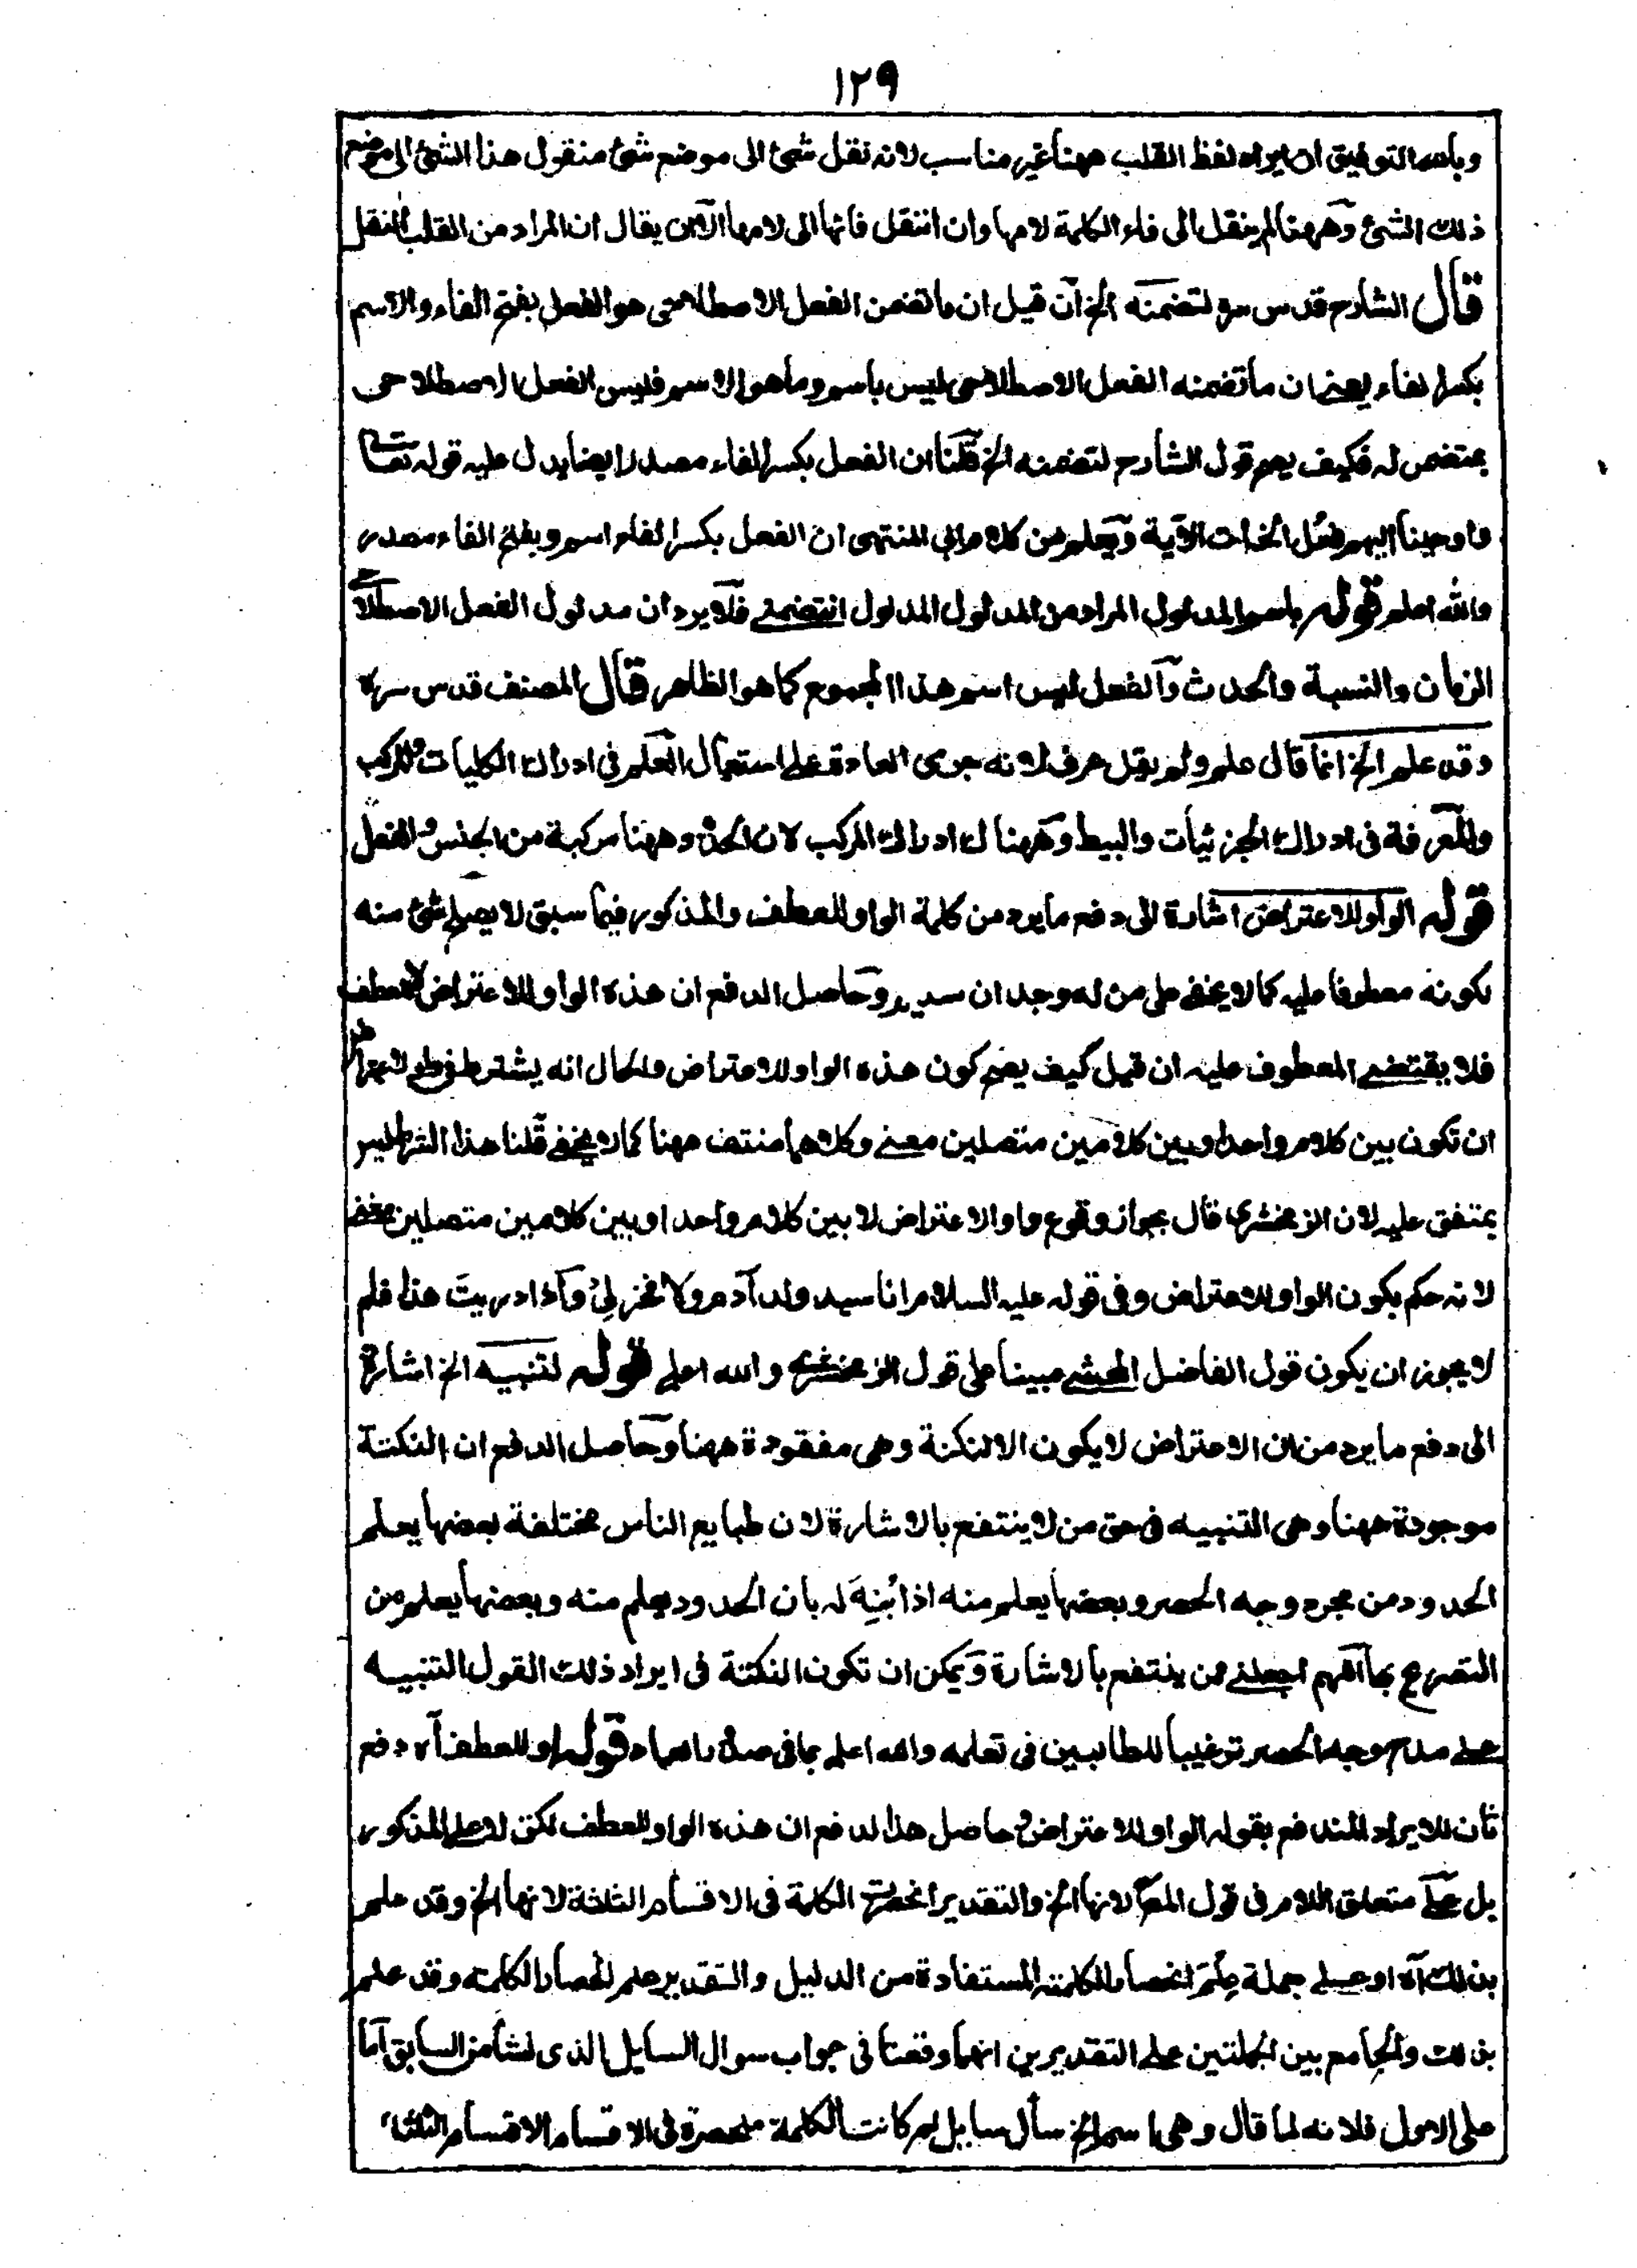 ١٢٩
وبالله التوفيق ان ايراد لفظ القلب ههنا غير مناسب لانه نقل شئ الى موضع شئ منقول هذا الشئ الى موضع
ذلك الشئ وههنا لم ينقل الى فاء الكلمة لامها وان انتقل فائها الى لامها الا ان يقال ان المراد من القلب النقل
قال الشارح قدس سره لتضمنه الخ ان قيل ان ما تضمن الفعل الاصطلاحى هو الفعل بفتح الفاء والاسم
بكسر الفاء يعنى ان ما تضمنه الفعل الاصطلاحى ليس باسم وما هو الاسم فليس الفعل الاصطلاحى
بمتضمن له فكيف يصح قول الشارح لتضمنه الخ قلنا ان الفعل بكسر الفاء مصدر ايضا يدل عليه قوله تعالى
واوحينا اليهم فعل الخيرات الآية ويعلم من كلام ابى المنتهى ان الفعل بكسر الفاء اسم وبفتح الفاء مصدر
والله اعلم قوله باسم المدلول المراد من المدلول المدلول التضمنى فلا يرد ان مدلول الفعل الاصطلاحى
الزمان والنسبة والحدث والفعل ليس اسم هذا المجموع كما هو الظاهر قال المصنف قدس سره
وقد علم الخ انما قال علم ولم يقل عرف لانه جرى العادة على استعمال العلم فى ادراك الكليات والمركب
والمعرفة فى ادراك الجزئيات والبسيط وههنا ادراك المركب لان الحدود ههنا مركبة من الجنس والفصل
قوله الواو للاعتراض اشارة الى دفع ما يرد من كلمة الواو للعطف والمذكور فيما سبق لا يصلح شئ منه
لكونه معطوفا عليه كما لا يخفى على من له وجدان سديد وحاصل الدفع ان هذه الواو للاعتراض لا للعطف
فلا يقتضى المعطوف عليه ان قيل كيف يصح كون هذه الواو للاعتراض والحال انه يشترط فى واو الاعتراض
ان تكون بين كلام واحد او بين كلامين متصلين معنى وكلاهما منتف ههنا كما لا يخفى قلنا هذا الشرط ليس
بمتفق عليه لان الزمخشرى قال بجواز وقوع واو الاعتراض لا بين كلام واحد او بين كلامين متصلين معنى
لانه حكم بكون الواو للاعتراض وفى قوله عليه السلام انا سيد ولد آدم ولا فخر لى واذا دريت هذا فلم
لا يجوز ان يكون قول الفاضل المحشى مبينا على قول الزمخشرى والله اعلم قوله لتنبيه الخ اشارة
الى دفع ما يرد من ان الاعتراض لا يكون الا لنكتة وهى مفقودة ههنا وحاصل الدفع ان النكتة
موجودة ههنا وهى التنبيه فى حق من لا ينتفع بالاشارة لان طبايع الناس مختلفة بعضها يعلم
الحدود من مجرد وجه الحصر وبعضها يعلم منه اذا نبه له بان الحدود يعلم منه وبعضها يعلم من
التصريح بها اللهم اجعلنى ممن ينتفع بالاشارة ويمكن ان تكون النكتة فى ايراد ذلك القول التنبيه
على مدح وجه الحصر ترغيبا للطالبين فى تعلمه والله اعلم بما فى صدور العباد قوله او للعطف آه دفع
ثان للايراد المندفع بقوله الواو للاعتراض وحاصل هذا الدفع ان هذه الواو للعطف لكن لا على المذكور
بل على متعلق اللام فى قول المص لانها الخ والتقدير انحصرت الكلمة فى الاقسام الثلثة لانها الخ وقد علم
بذلك آه او على جملة علم انحصار الكلمة المستفادة من الدليل والتقدير علم انحصار الكلمة وقد علم
بذلك والجامع بين الجملتين على التقديرين انهما وقعتا فى جواب سوال السايل الذى نشأ من السابق اما
على الاول فلانه لما قال وهى اسم الخ سأل سايل لم كانت الكلمة منحصرة فى الاقسام الاقسام الثلثة